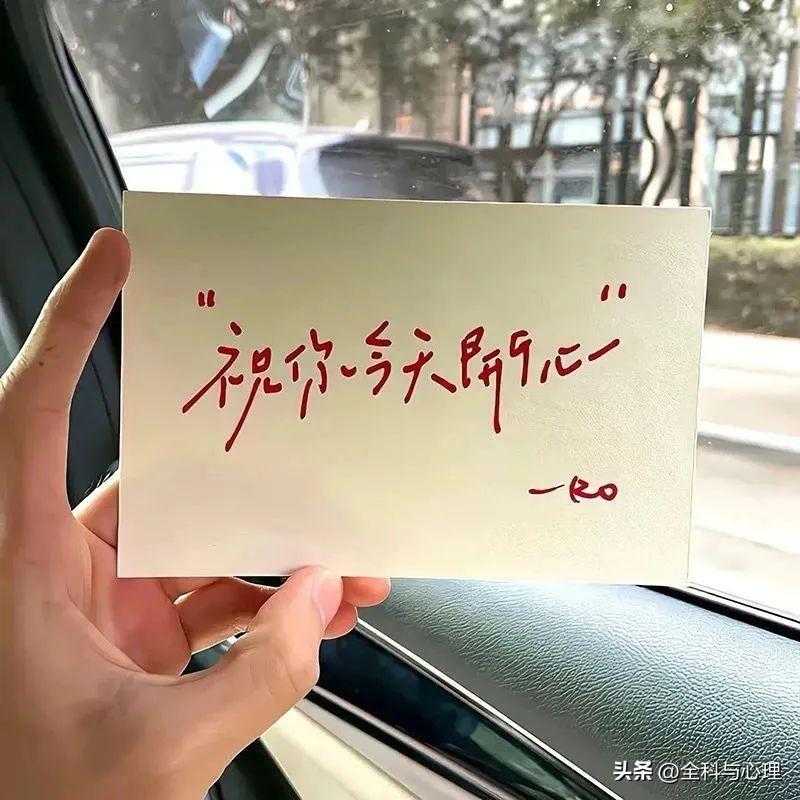 "祝你今天開心"
一KO
头条 @全科与心理